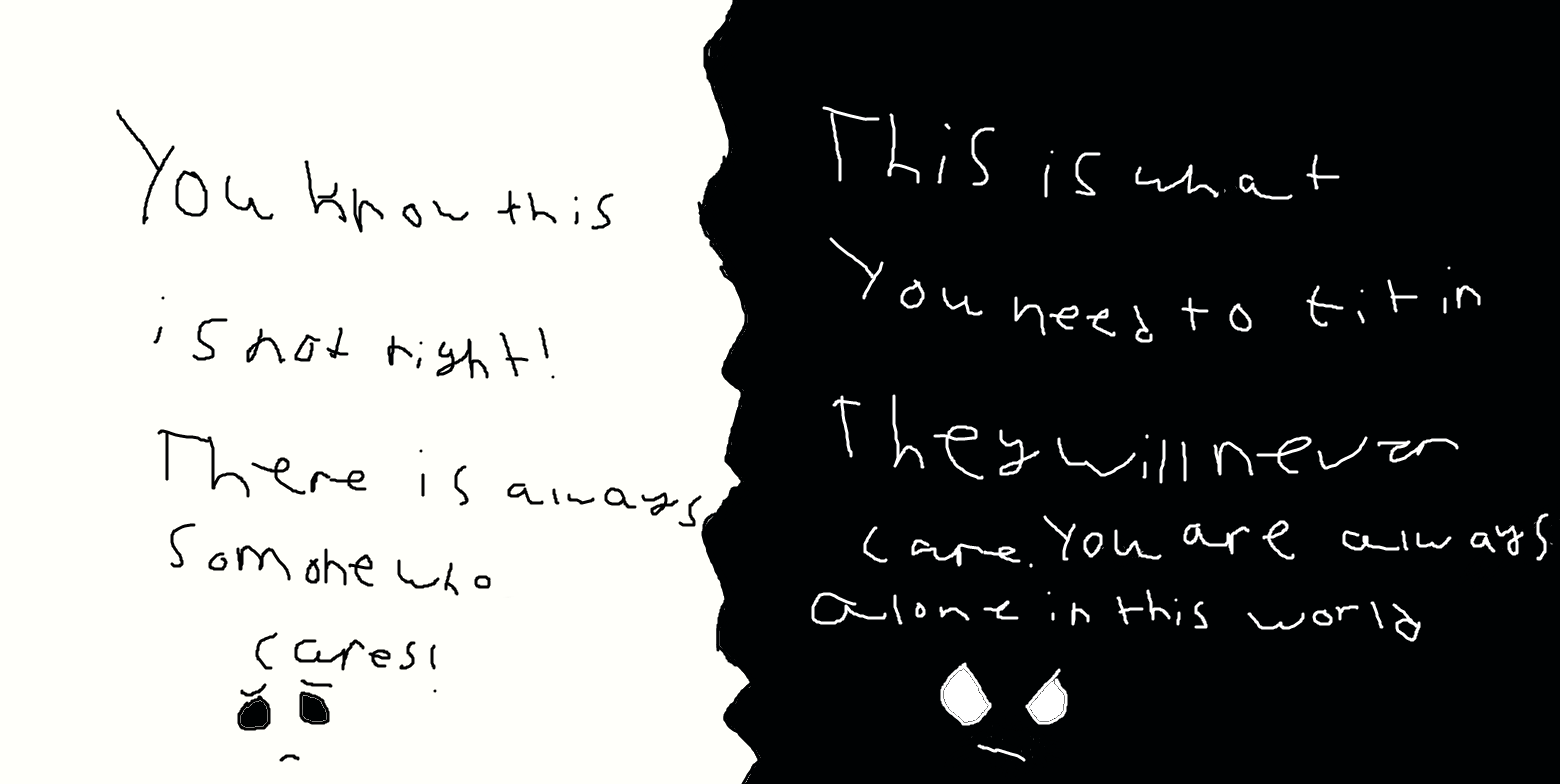 You know this
is not right!
There is always
Somone who
cares!
This is what
You need to fit in
They will never
care. You are always
alone in this world